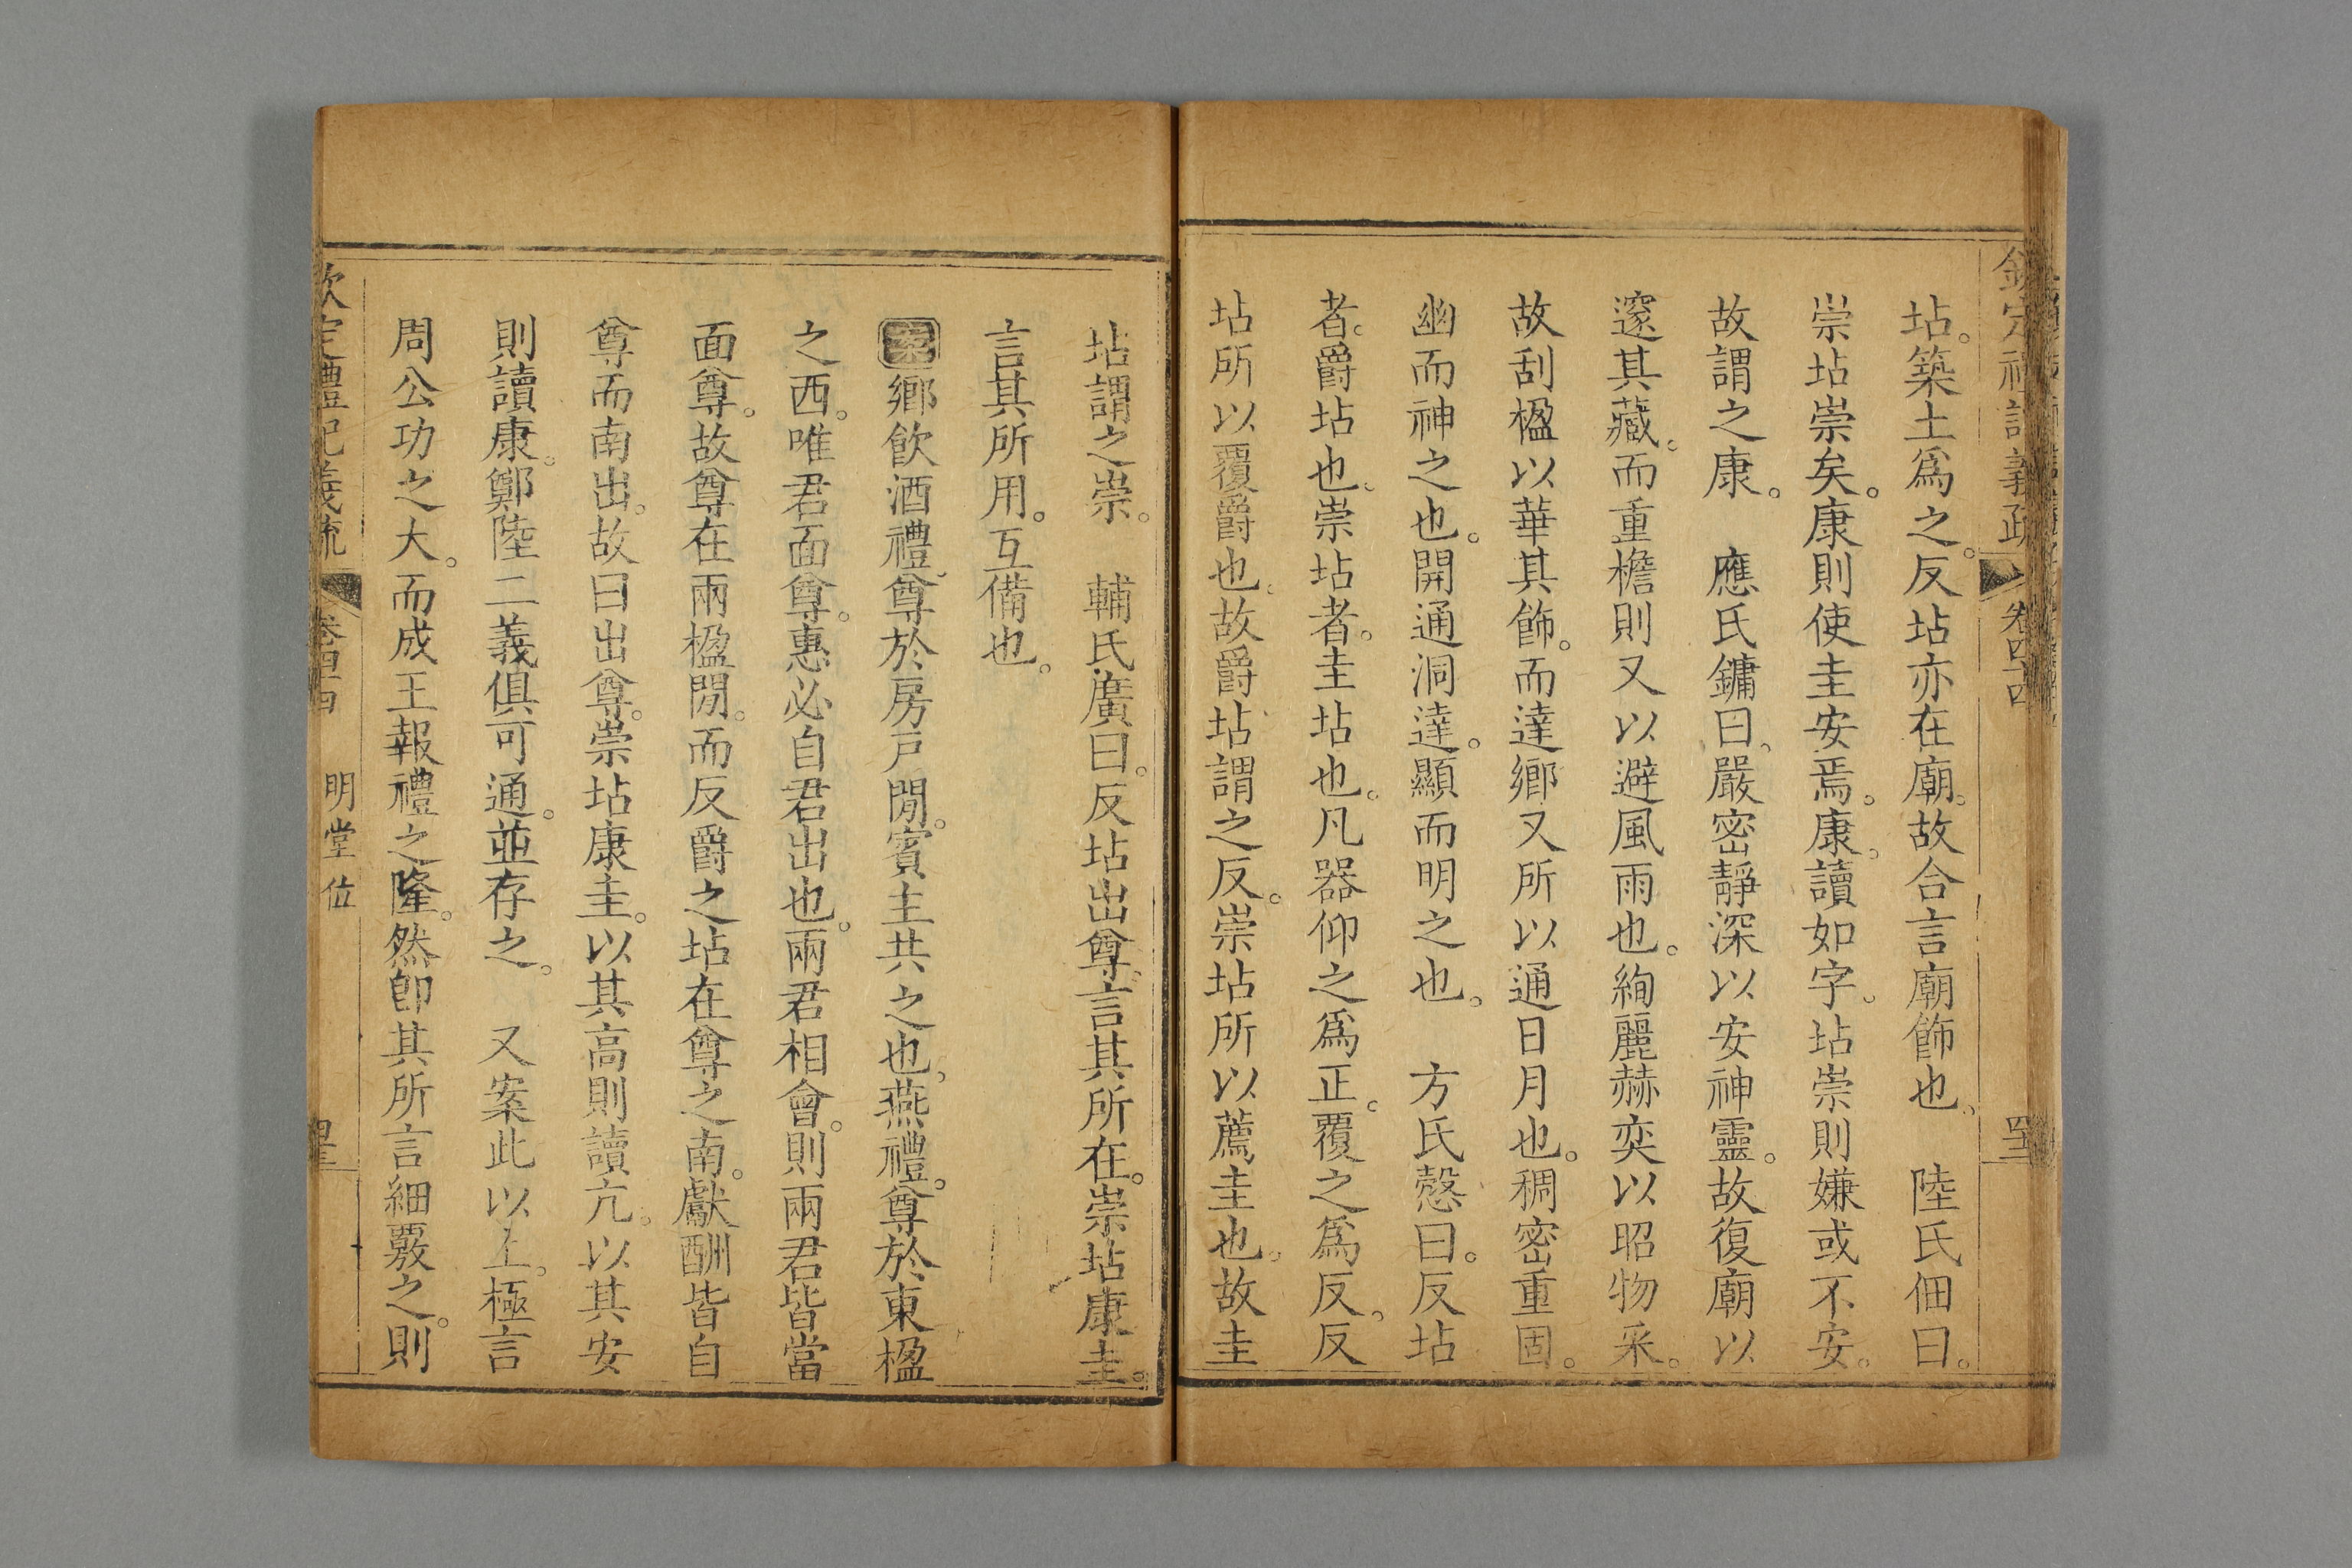 欽定禮記義疏 卷四十四
坫。築土爲之。反坫亦在廟。故合言廟飾也。 陸氏佃曰。
崇坫崇矣。康則使圭安焉。康。讀如字。坫崇則嫌或不安。
故謂之康。 應氏鏞曰。嚴密靜深以安神靈。故復廟以
邃其藏。而重檐則又以避風雨也。絢麗赫奕以昭物采。
故刮楹以華其飾。而達鄉又所以通日月也。稠密重固。
幽而神之也。開通洞達。顯而明之也。 方氏慤曰。反坫
者。爵坫也。崇坫者。圭坫也。凡器仰之爲正。覆之爲反。反
坫所以覆爵也。故爵坫謂之反。崇坫所以薦圭也。故圭
坫謂之崇。 輔氏廣曰。反坫出尊。言其所在。崇坫康圭。
言其所用。互備也。
案鄉飲酒禮。尊於房戶閒。賓主共之也。燕禮。尊於東楹
之西。唯君面尊。惠必自君出也。兩君相會。則兩君皆當
面尊。故尊在兩楹閒。而反爵之坫在尊之南。獻酬皆自
尊而南出。故曰出尊。崇坫康圭。以其高則讀亢。以其安
則讀康。鄭陸二義俱可通。並存之。 又案此以上。極言
周公功之大。而成王報禮之隆。然卽其所言細覈之。則
欽定禮記義疏 卷四十四 明堂位